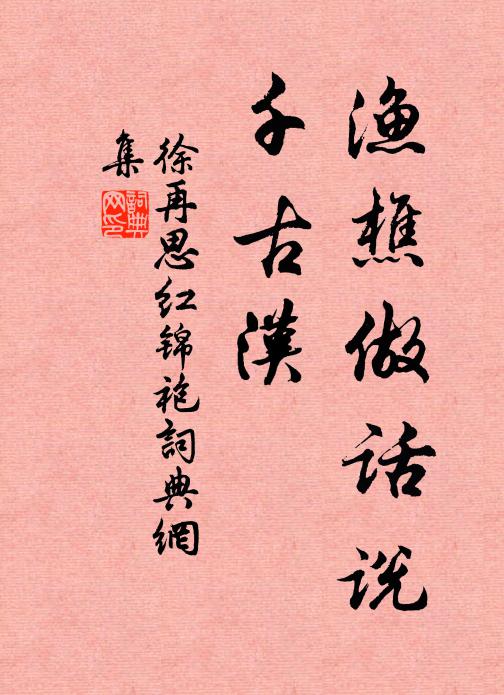 渔樵做话说
千古漢
徐再思红锦袍詞典網
集
詞典
网印